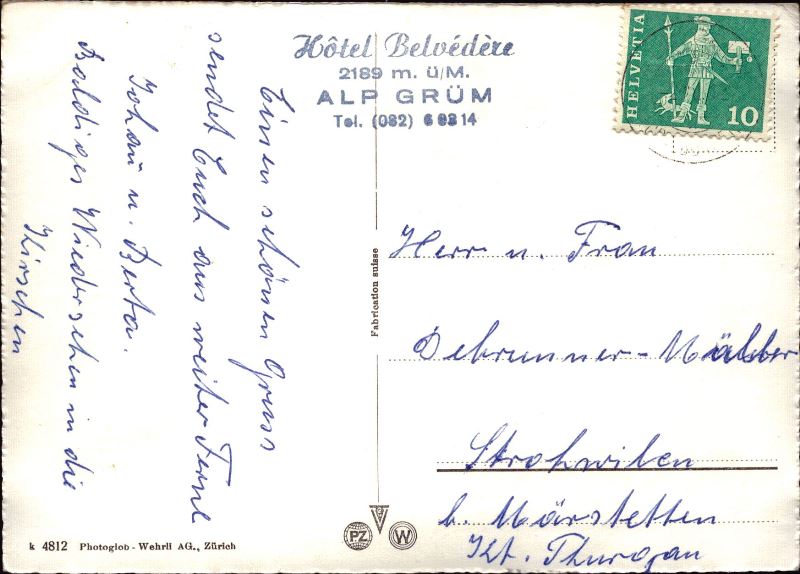 Hôtel Belvédère
2189 m. ü/M.
ALP GRÜM
Tel. (082) 6 98 14
HELVETIA
10
Einen schönen Gruss
sendet Euch aus weiter Ferne
Johan u. Berta.
Baldiges Wiedersehen in die
Kirschen
Fabrication suisse
Herr u. Frau
Debrunner-
Strohwilen
b. Märstetten
Kt. Thurgau
PZ
W
k 4812 Photoglob - Wehrli AG., Zürich